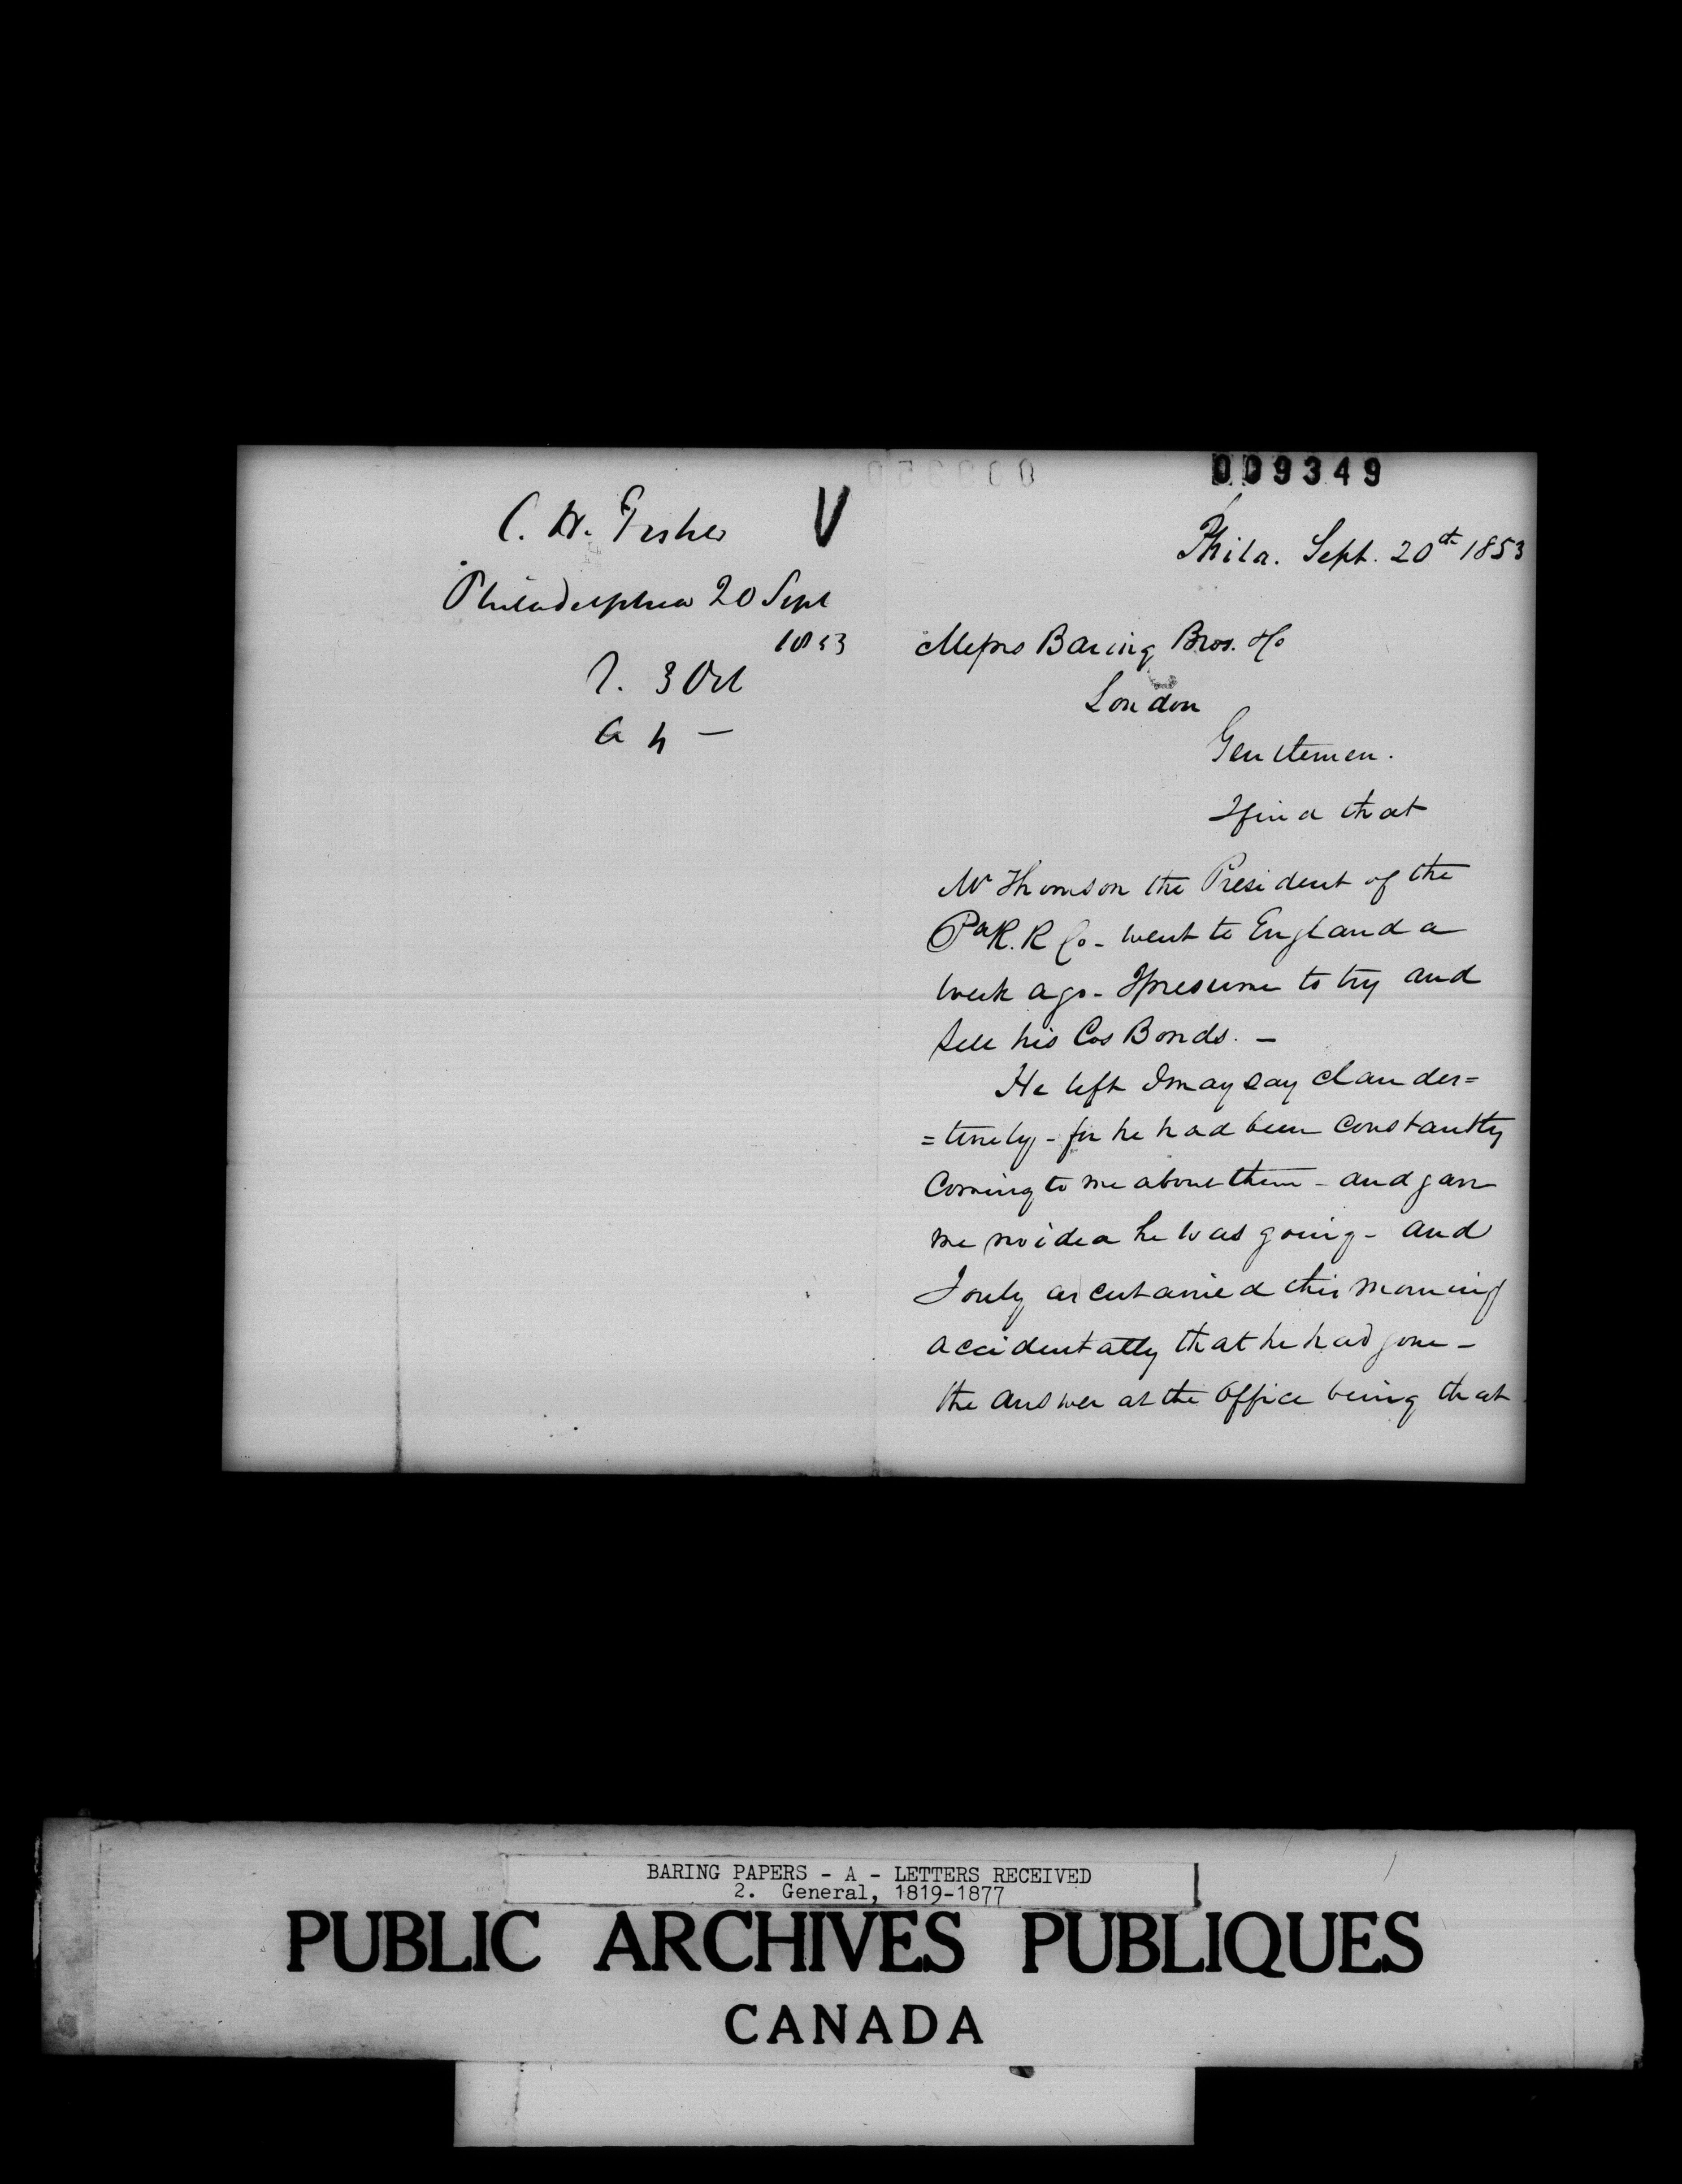 C. H. Fisher V
Philadelphia 20 Sept
1853
3 Oct
009349
Phila. Sept. 20th 1853
Messrs Baring Bros. & Co
London
Gentlemen.
I find that
Mr Thomson the President of the
Pa R. R Co - went to England a
week ago - I presume to try and
sell his Cos Bonds. -
He left I may say clandes=
=tinely - for he had been constantly
coming to me about them - and gave
me no idea he was going - and
I only ascertained this morning
accidentally that he had gone -
the answer at the office being that
BARING PAPERS - A - LETTERS RECEIVED
2. General, 1819-1877
PUBLIC ARCHIVES PUBLIQUES
CANADA